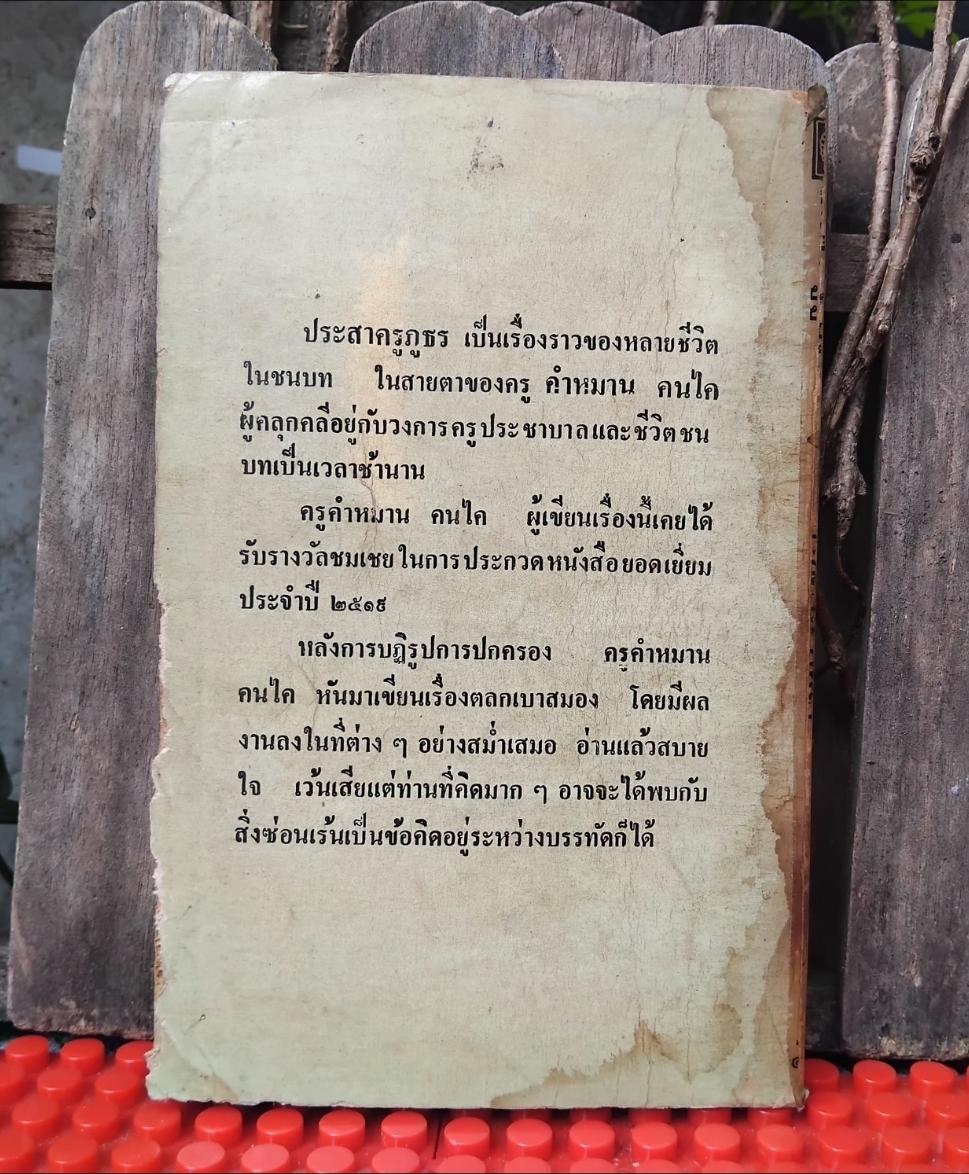 ประสาครูภูธร เป็นเรื่องราวของหลายชีวิต
ในชนบท ในสายตาของครู คำหมาน คนไค
ผู้คลุกคลีอยู่กับวงการครูประชาบาลและชีวิตชน
บทเป็นเวลาช้านาน
ครูคำหมาน คนไค ผู้เขียนเรื่องนี้เคยได้
รับรางวัลชมเชยในการประกวดหนังสือยอดเยี่ยม
ประจำปี ๒๕๑๙
หลังการปฏิรูปการปกครอง ครูคำหมาน
คนไค หันมาเขียนเรื่องตลกเบาสมอง โดยมีผล
งานลงในที่ต่าง ๆ อย่างสม่ำเสมอ อ่านแล้วสบาย
ใจ เว้นเสียแต่ท่านที่คิดมาก ๆ อาจจะได้พบกับ
สิ่งซ่อนเร้นเป็นข้อคิดอยู่ระหว่างบรรทัดก็ได้